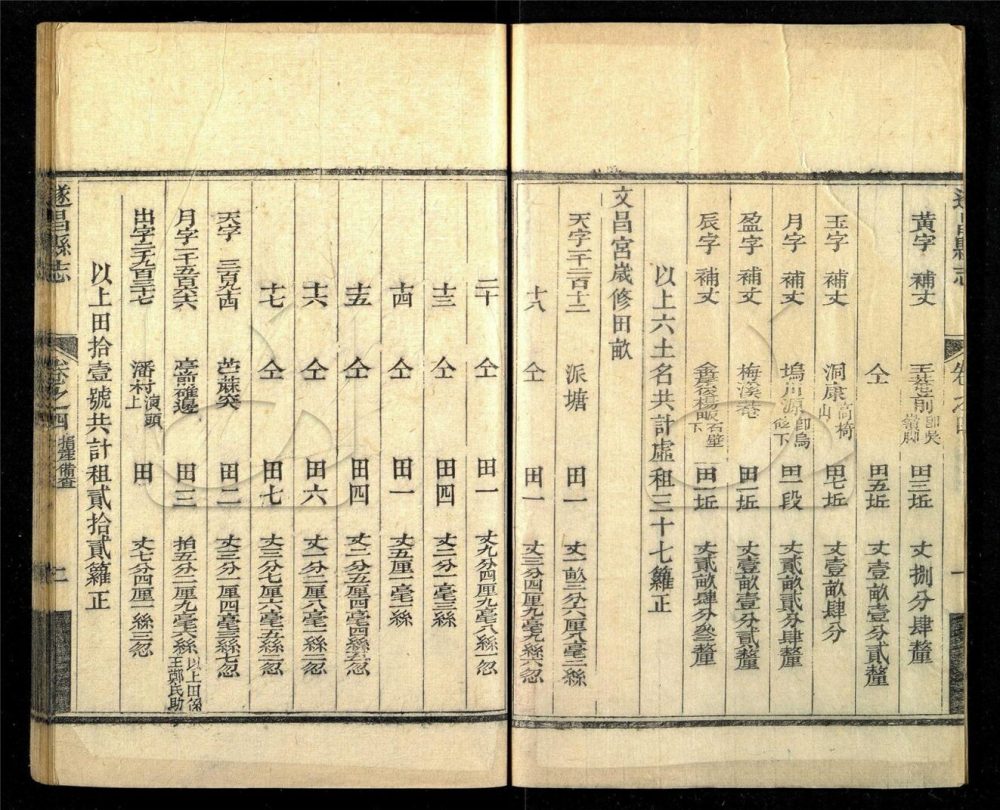 黃字 補丈 前 卽吳嶺脚 田三坵 丈捌分肆釐
仝 田五坵 丈壹畝壹分貳釐
玉字 補丈 洞康 高椅山 田七坵 丈壹畝肆分
月字 補丈 塢川源 卽烏下 田一段 丈貳畝貳分肆釐
盈字 補丈 梅溪 田一坵 丈壹畝壹分貳釐
辰字 補丈 後楊畈 石壁下 田一坵 丈貳畝肆分叁釐
以上六土名共計虛租三十七籮正
文昌宮歲修田畝
天字一千二百十二 派塘 田一 丈一畝三分六厘八毫二絲
十八 仝 田一 丈三分四厘九毫九絲六忽
二十 仝 田一 丈九分四厘九毫八絲一忽
十三 仝 田四 丈二分一毫三絲
十四 仝 田一 丈五厘一毫一絲
十五 仝 田四 丈二分五厘四毫四絲五忽
十六 仝 田六 丈一分二厘八毫一絲一忽
十七 仝 田七 丈三分七厘六毫五絲一忽
天字 三百九十四 苎蘇突 田二 丈三分一厘四毫三絲七忽
月字二千五百六十六 亭前碓邊 田三 拍五分二厘九毫六絲 以上田係王鄭氏助
出字二千九百三十七 潘村上 演頭 田 丈七分四厘一絲三忽
以上田拾壹號共計租貳拾貳籮正
遂昌縣志 卷之四